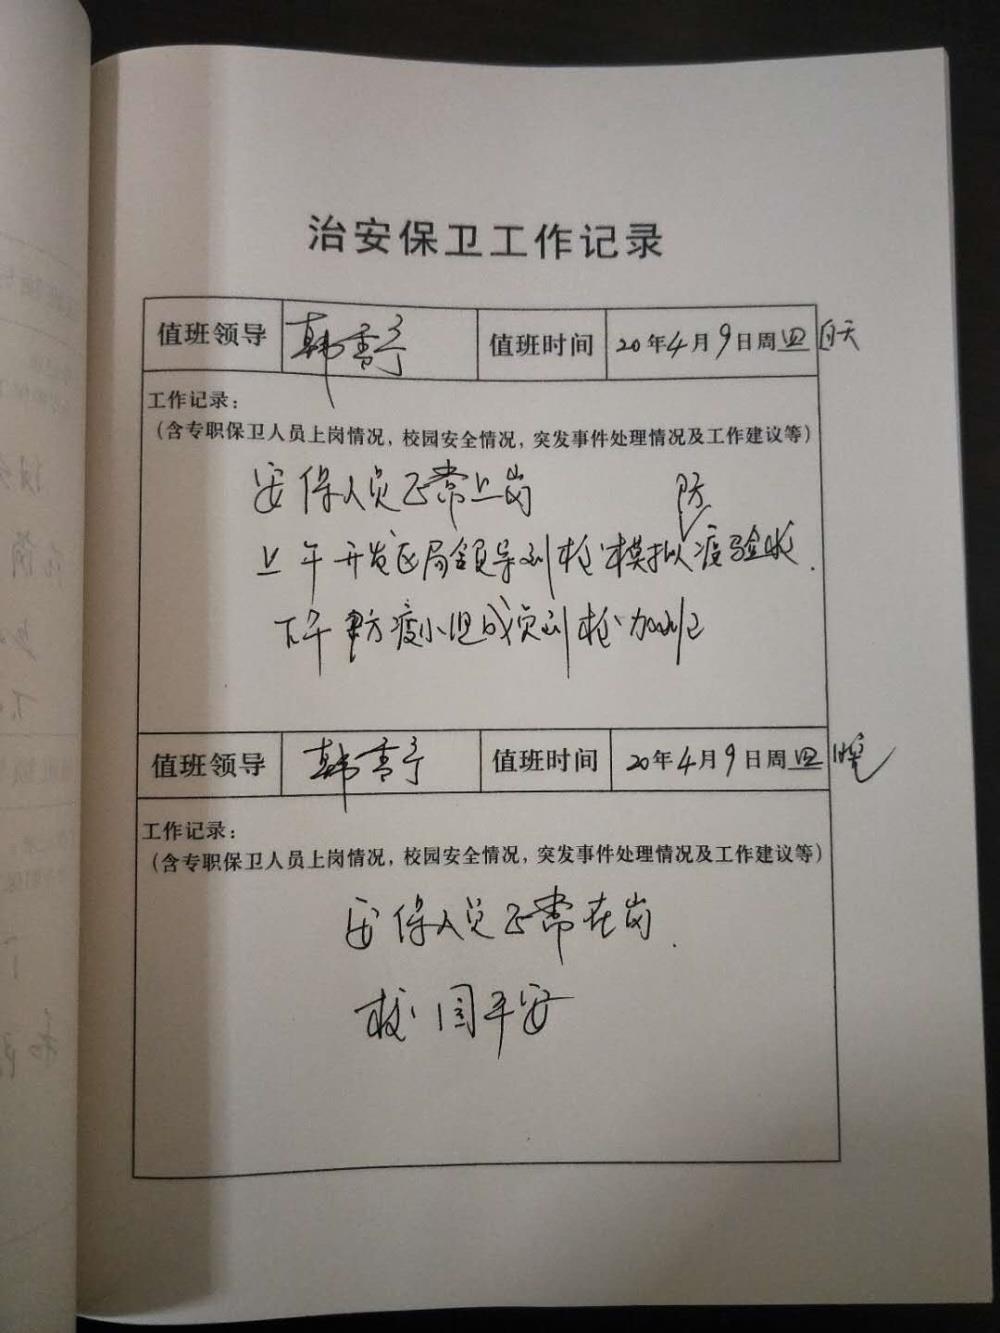 治安保卫工作记录
值班领导 韩 值班时间 20年4月9日周四 白天
工作记录：
（含专职保卫人员上岗情况，校园安全情况，突发事件处理情况及工作建议等）
安保人员正常上岗
上午开发区局领导到校模拟防疫验收.
下午防疫小组成员到校加班
值班领导 韩 值班时间 20年4月9日周四 晚
工作记录：
（含专职保卫人员上岗情况，校园安全情况，突发事件处理情况及工作建议等）
安保人员正常在岗.
校园平安